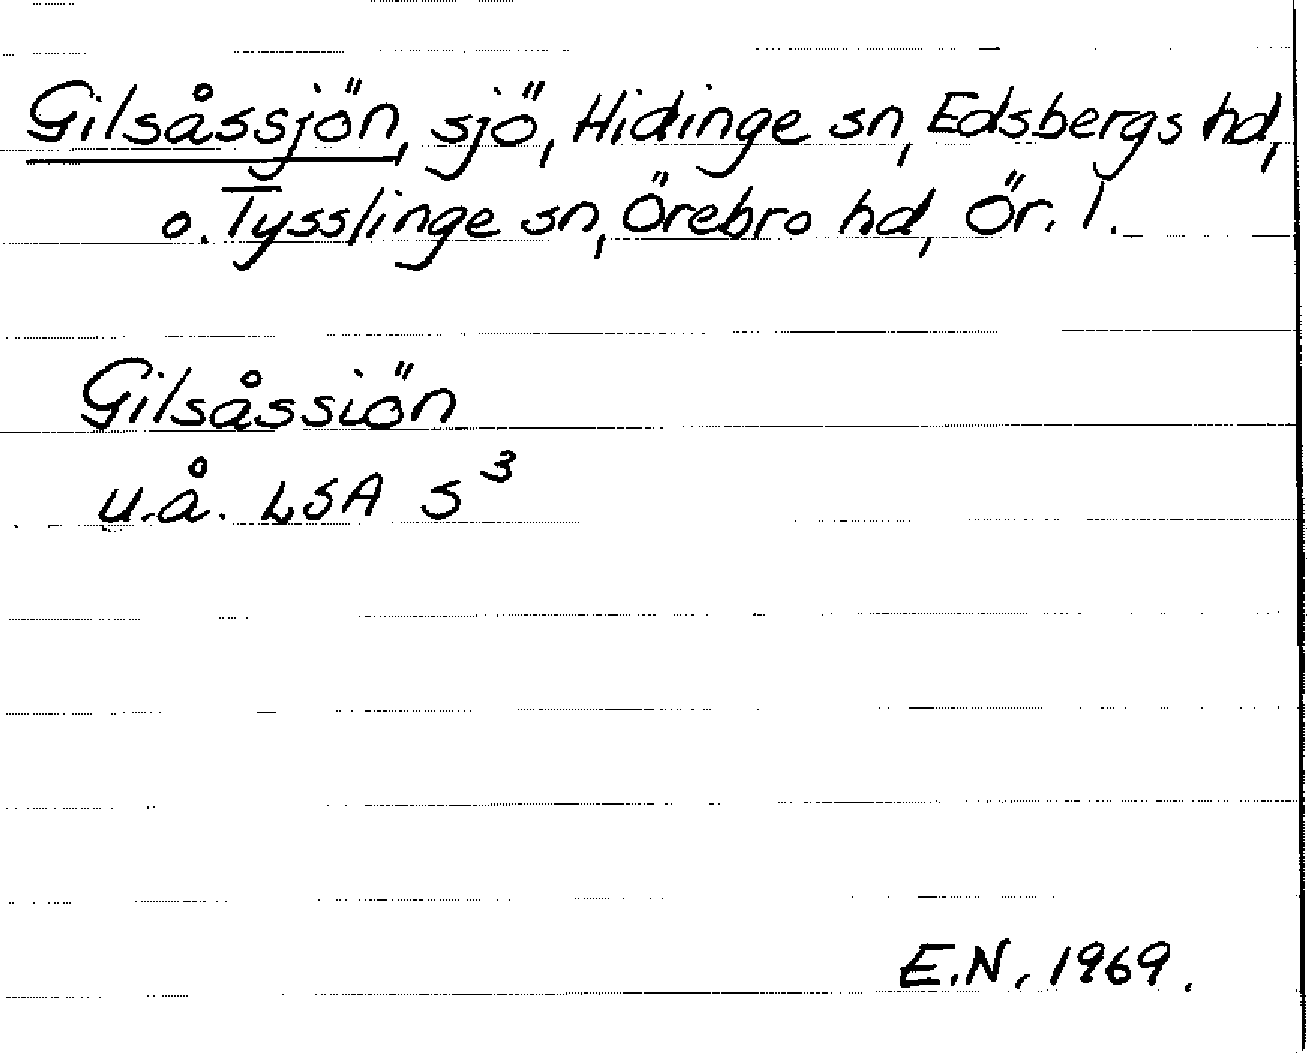 Gilsåssjön, sjö, Hidinge sn, Edsbergs hd,
o. Tysslinge sn, Örebro hd, Ör. l.
Gilsåssiön
u.å. LSA S³
E.N. 1969.